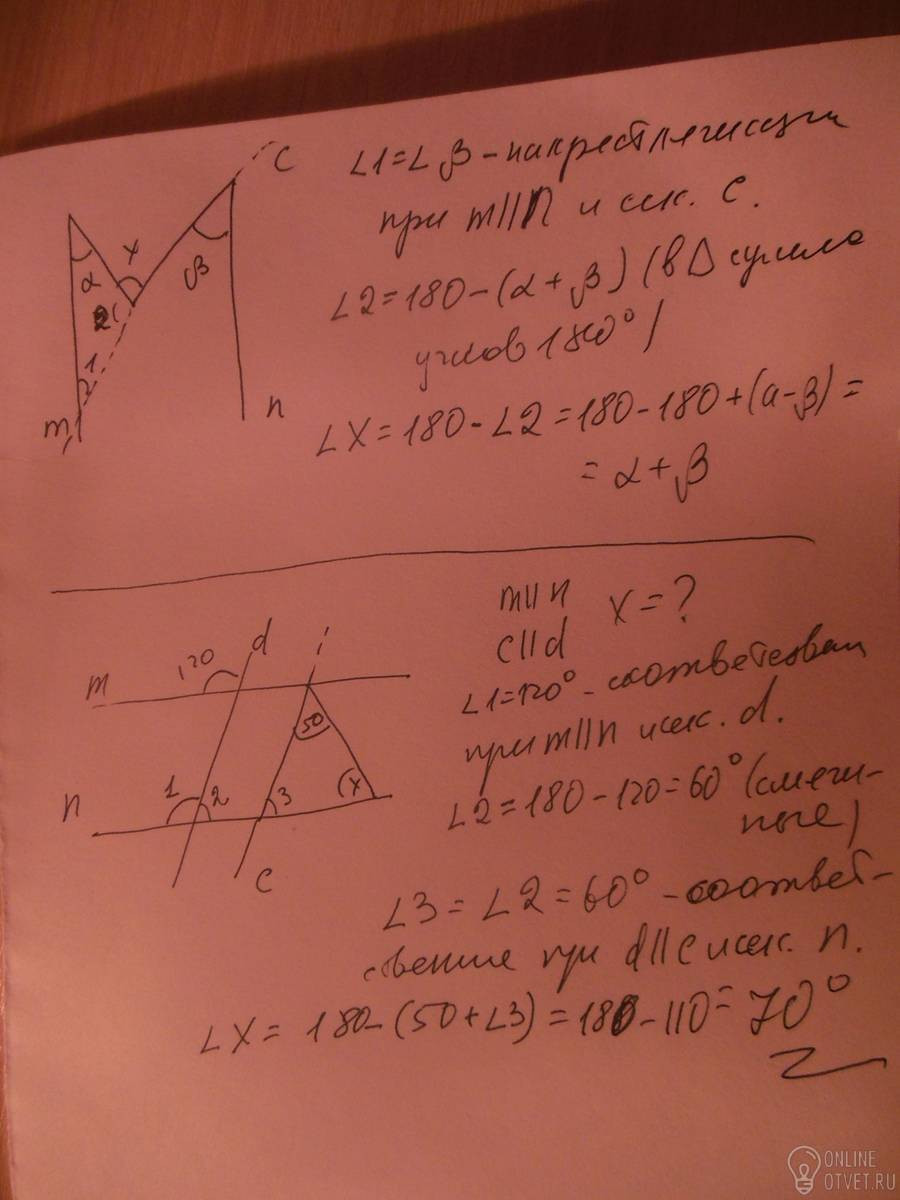 C
∠1=∠β - накрест лежащие
при m||n и сек. C.
α
x
β
2
∠2=180-(α+β) (в Δ сумма
углов 180°)
1
m
n
∠X=180-∠2=180-180+(α-β)=
=α+β
m||n
x=?
c||d
120
d
m
∠1=120° - соответствен
50
при m||n и сек. d.
n
1
2
3
x
∠2=180-120=60° (смеж-
ные)
c
∠3=∠2=60° - соответ-
ственные при d||c и сек. n.
∠X=180-(50+∠3)=180-110=70°
ONLINE
OTVET.RU